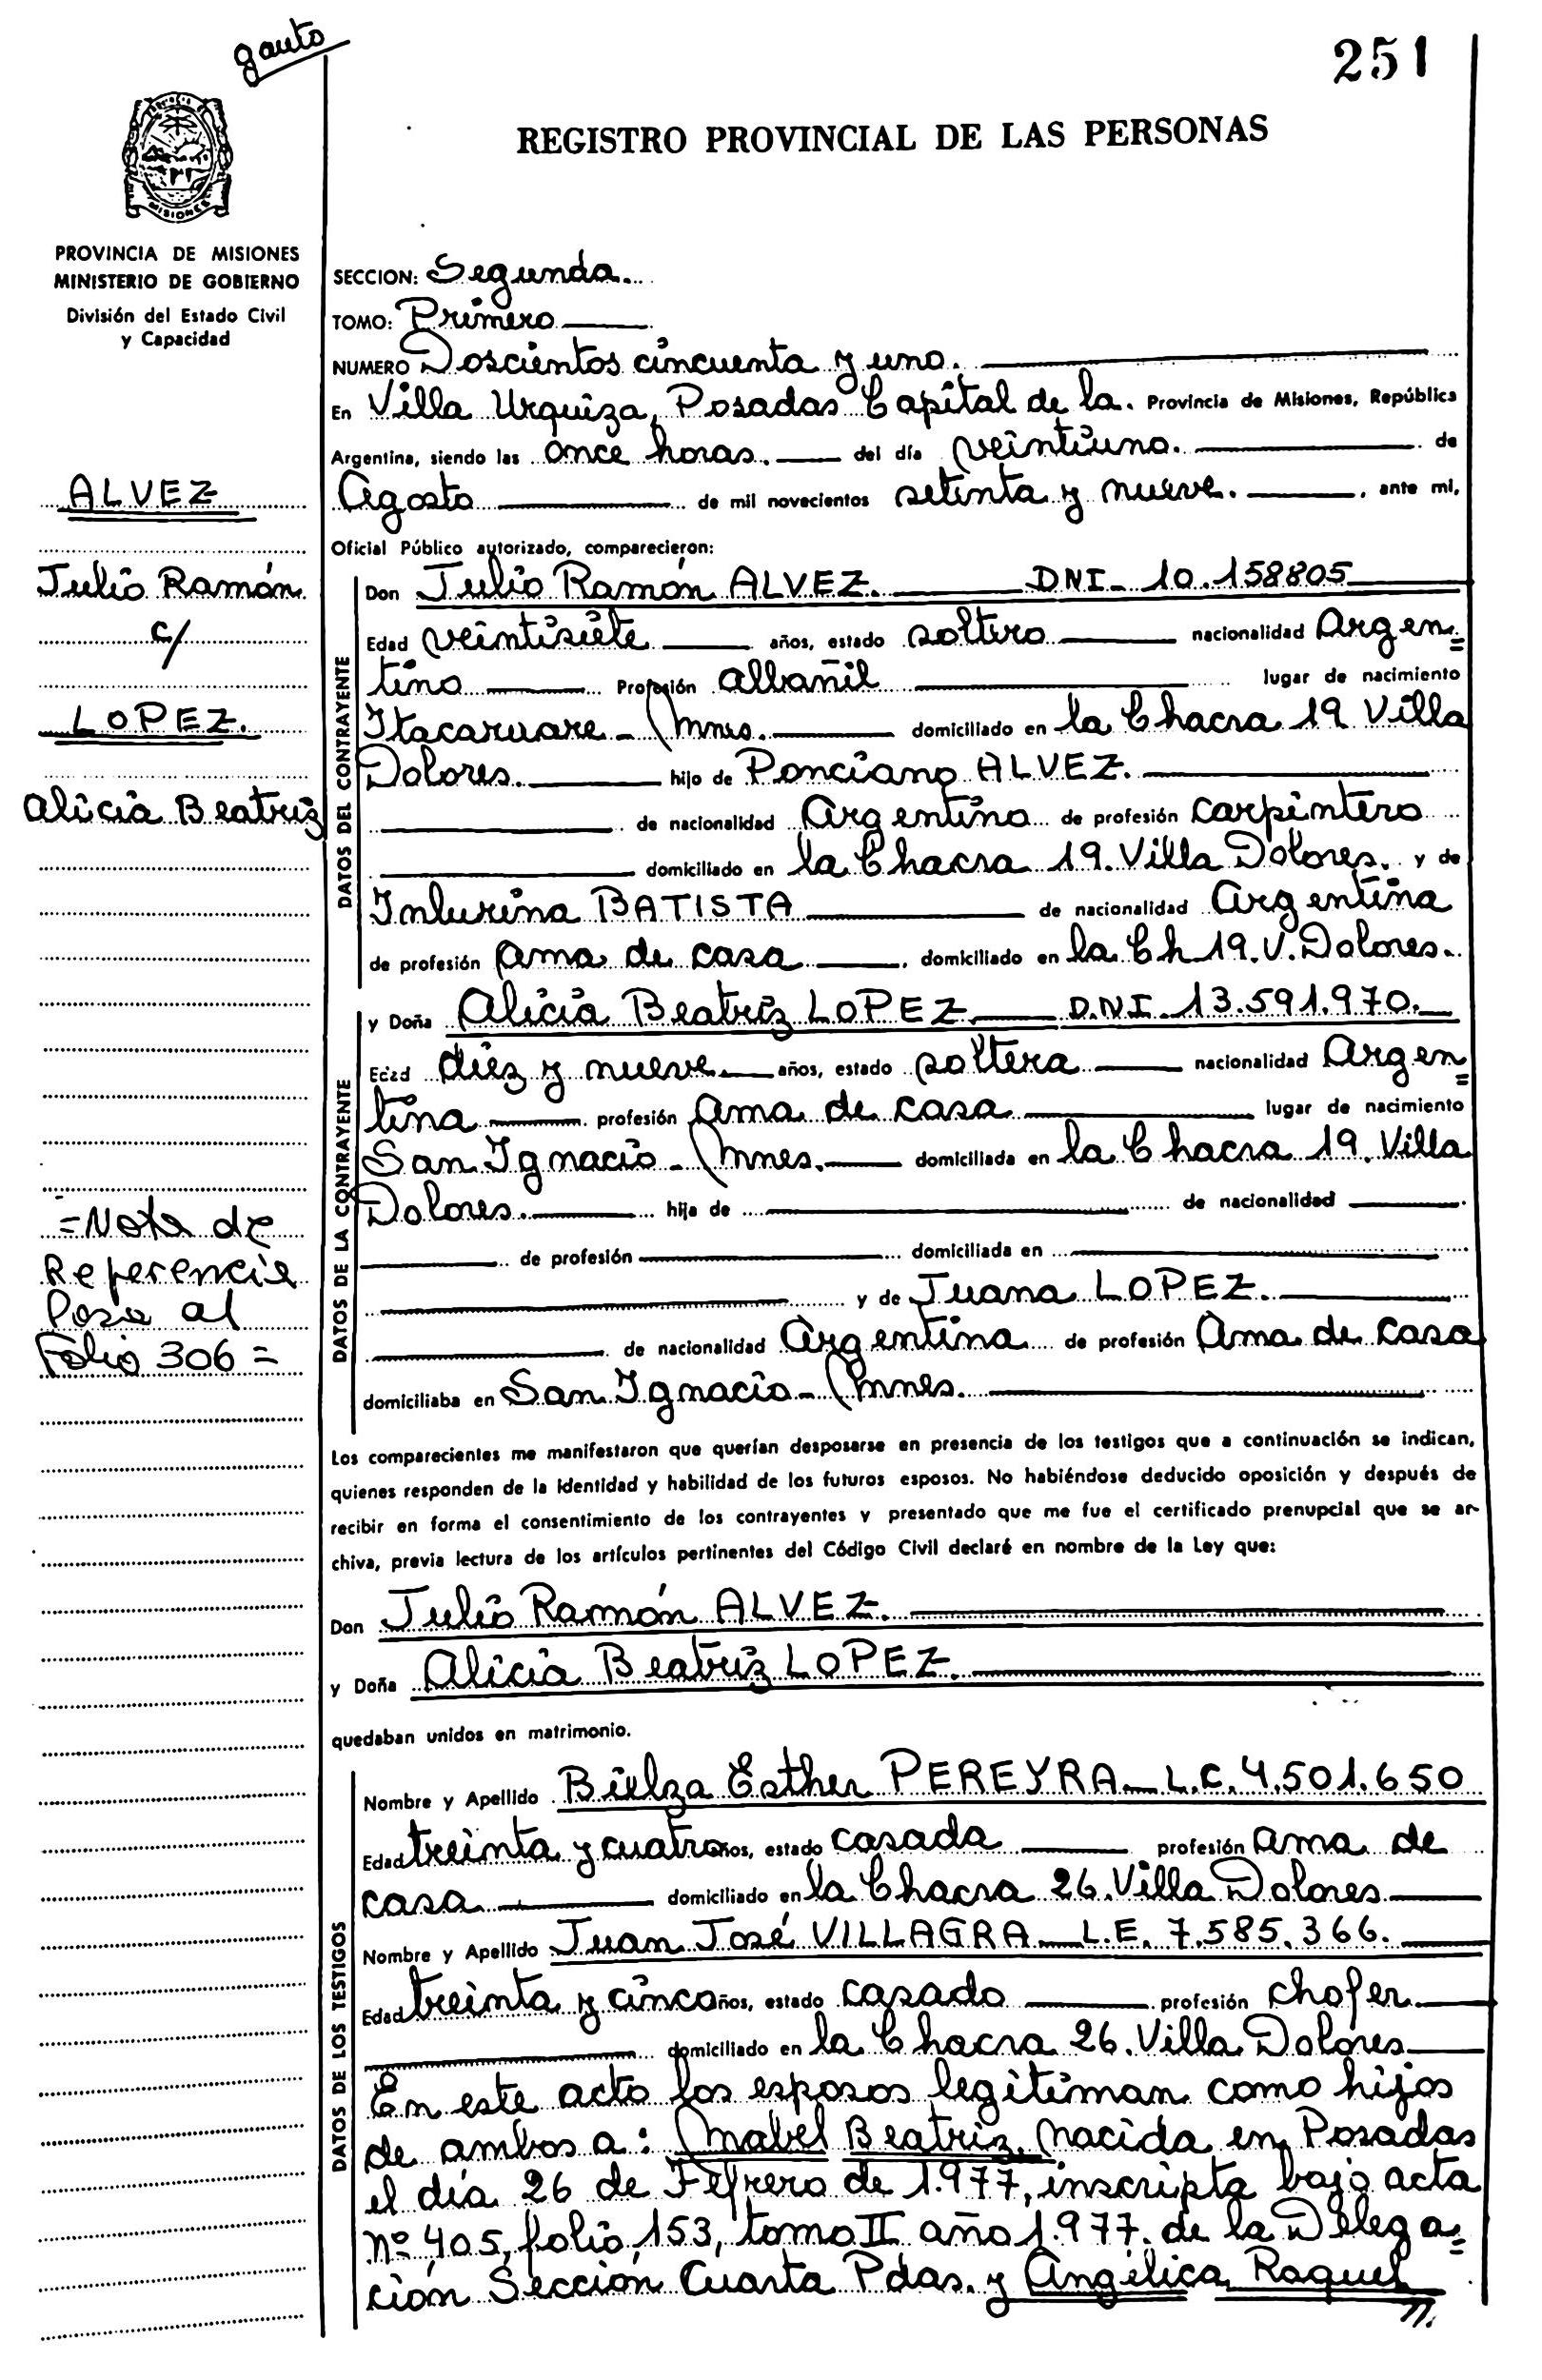 gauto
251
REGISTRO PROVINCIAL DE LAS PERSONAS
MISIONES
PROVINCIA DE MISIONES
MINISTERIO DE GOBIERNO
División del Estado Civil
y Capacidad
ALVEZ
Julio Ramón
c/
LOPEZ.
Alicia Beatriz
=Nota de
Referencia
Pasa al
Folio 306=
SECCION: Segunda.
TOMO: Primero
NUMERO Doscientos cincuenta y uno.
En Villa Urquiza, Posadas Capital de la. Provincia de Misiones, República
Argentina, siendo las once horas. del día veintiuno. de
Agosto de mil novecientos setenta y nueve. , ante mi,
Oficial Público autorizado, comparecieron:
DATOS DEL CONTRAYENTE
Don Julio Ramón ALVEZ. DNI- 10.158805
Edad veintisiete años, estado soltero nacionalidad Argen=
tino Profesión albañil lugar de nacimiento
Itacaruare - Mnes. domiciliado en la Chacra 19 Villa
Dolores. hijo de Ponciano ALVEZ.
de nacionalidad Argentino de profesión carpintero
domiciliado en la Chacra 19. Villa Dolores. y de
Inlurina BATISTA de nacionalidad Argentina
de profesión ama de casa , domiciliado en la Ch 19. V. Dolores.
DATOS DE LA CONTRAYENTE
y Doña Alicia Beatriz LOPEZ D.N.I. 13.591.970.
Edad diez y nueve años, estado soltera nacionalidad Argen=
tina profesión ama de casa lugar de nacimiento
San Ignacio - Mnes. domiciliada en la Chacra 19. Villa
Dolores. hija de de nacionalidad
de profesión domiciliada en
y de Juana LOPEZ.
de nacionalidad Argentina de profesión Ama de casa
domiciliaba en San Ignacio - Mnes.
Los comparecientes me manifestaron que querían desposarse en presencia de los testigos que a continuación se indican,
quienes responden de la identidad y habilidad de los futuros esposos. No habiéndose deducido oposición y después de
recibir en forma el consentimiento de los contrayentes y presentado que me fue el certificado prenupcial que se ar-
chiva, previa lectura de los artículos pertinentes del Código Civil declaré en nombre de la Ley que:
Don Julio Ramón ALVEZ.
y Doña Alicia Beatriz LOPEZ.
quedaban unidos en matrimonio.
DATOS DE LOS TESTIGOS
Nombre y Apellido Bielza Esther PEREYRA L.C. 4.501.650
Edad treinta y cuatro años, estado casada profesión ama de
casa domiciliado en la Chacra 26. Villa Dolores
Nombre y Apellido Juan José VILLAGRA L.E. 7.585.366.
Edad treinta y cinco años, estado casado profesión chofer
domiciliado en la Chacra 26. Villa Dolores
En este acto los esposos legitiman como hijos
de ambos a: Mabel Beatriz, nacida en Posadas
el día 26 de Febrero de 1.977, inscripta bajo acta
nº 405, folio 153, tomo II año 1.977. de la Delega=
ción Sección Cuarta Pdas. y Angélica Raquel